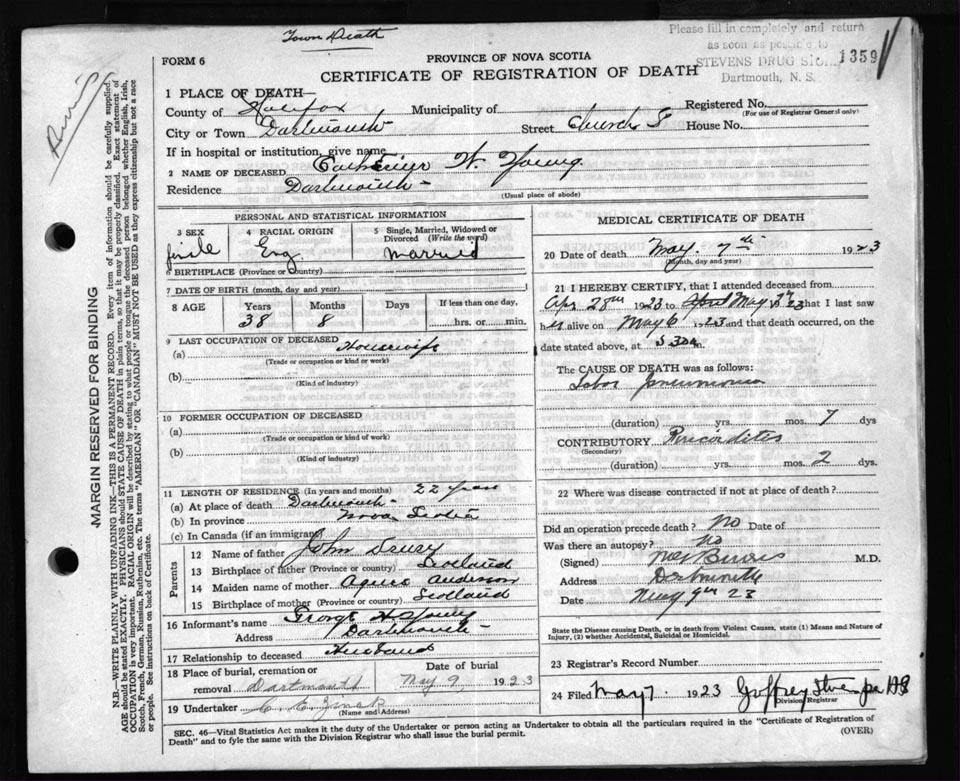 Town Death
Please fill in completely and return
as soon as possible to
STEVENS DRUG STORE
Dartmouth, N. S.
1359
FORM 6
PROVINCE OF NOVA SCOTIA
CERTIFICATE OF REGISTRATION OF DEATH
1 PLACE OF DEATH—
County of Halifax Municipality of Registered No.
(For use of Registrar General only)
City or Town Dartmouth Street Church St House No.
If in hospital or institution, give name
2 NAME OF DECEASED W. Young.
Residence Dartmouth
(Usual place of abode)
PERSONAL AND STATISTICAL INFORMATION
3 SEX 4 RACIAL ORIGIN 5 Single, Married, Widowed or Divorced (Write the word)
Eng. married
6 BIRTHPLACE (Province or Country)
7 DATE OF BIRTH (month, day and year)
8 AGE Years Months Days If less than one day,
38 8 hrs. or min.
9 LAST OCCUPATION OF DECEASED
(a) Housewife
(Trade or occupation or kind of work)
(b)
(Kind of industry)
10 FORMER OCCUPATION OF DECEASED
(a)
(Trade or occupation or kind of work)
(b)
(Kind of industry)
11 LENGTH OF RESIDENCE (In years and months) 22 years
(a) At place of death Dartmouth
(b) In province Nova Scotia
(c) In Canada (if an immigrant)
Parents
12 Name of father John
13 Birthplace of father (Province or country) Scotland
14 Maiden name of mother Agnes Anderson
15 Birthplace of mother (Province or country) Scotland
16 Informant's name George W. Young
Address Dartmouth
17 Relationship to deceased Husband
18 Place of burial, cremation or Date of burial
removal Dartmouth May 9 1923
19 Undertaker C. E.
(Name and Address)
MEDICAL CERTIFICATE OF DEATH
20 Date of death May 7th 1923
(Month, day and year)
21 I HEREBY CERTIFY, that I attended deceased from
Apr 28th 1923 to May 7th 1923 that I last saw
her alive on May 6 1923 and that death occurred, on
date stated above, at 5.30 a m.
The CAUSE OF DEATH was as follows:
Lobar pneumonia
(duration) yrs. mos. 7 dys
CONTRIBUTORY Pericarditis
(Secondary)
(duration) yrs. mos. 2 dys.
22 Where was disease contracted if not at place of death?
Did an operation precede death? No Date of
Was there an autopsy? No
(Signed) M.D.
Address Dartmouth
Date May 9th 23
State the Disease causing Death, or in death from Violent Causes, state (1) Means and Nature of
Injury, (2) whether Accidental, Suicidal or Homicidal.
23 Registrar's Record Number
24 Filed May 7. 1923 Geoffrey Stevens
Division Registrar
SEC. 46—Vital Statistics Act makes it the duty of the Undertaker or person acting as Undertaker to obtain all the particulars required in the "Certificate of Registration of
Death" and to fyle the same with the Division Registrar who shall issue the burial permit.
(OVER)
MARGIN RESERVED FOR BINDING
N.B.—WRITE PLAINLY WITH UNFADING INK—THIS IS A PERMANENT RECORD. Every item of information should be carefully supplied.
AGE should be stated EXACTLY. PHYSICIANS should STATE CAUSE OF DEATH in plain terms, so that it may be properly classified. Exact statement of
OCCUPATION is very important. RACIAL ORIGIN will be described by stating to what people or tongue the deceased person belonged whether English, Irish,
Scotch, French, German, Russian, Ruthenian, etc. The terms "AMERICAN" OR "CANADIAN" MUST NOT BE USED as they express citizenship but not a race
or people. See instructions on back of Certificate.